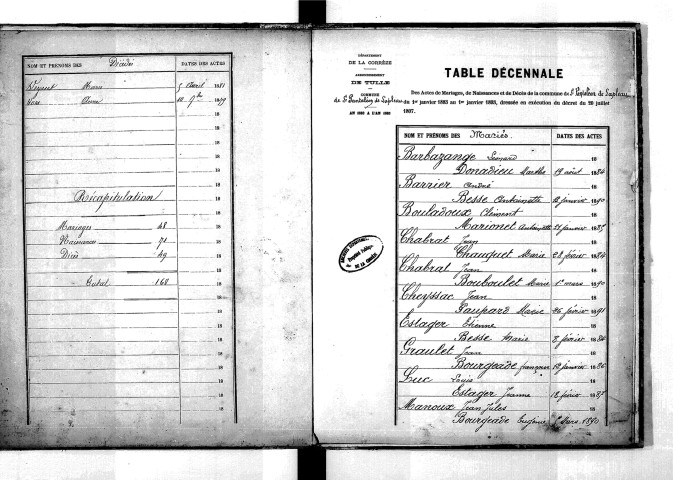 NOM ET PRÉNOMS DES Décédés DATES DES ACTES
Marie 5 avril 1881
Anne 10 9bre 1879
18
18
18
18
18
Récapitulation
Mariages 48
Naissances 71
Décès 49
Total 168
DÉPARTEMENT
DE LA CORRÈZE
ARRONDISSEMENT
DE TULLE
COMMUNE
de St Pantaléon de Lapleau
TABLE DÉCENNALE
Des Actes de Mariages, de Naissances et de Décès de la commune de St Pantaléon de Lapleau
du 1er janvier 1883 au 1er janvier 1893, dressée en exécution du décret du 20 juillet
1807.
NOM ET PRÉNOMS DES Mariés DATES DES ACTES
Barbazange Léonard 18
Donadieu Marthe 19 août 1884
Barrier André 18
Besse Antoinette 12 janvier 1890
Bouladoux Clément 18
Marionet Antoinette 25 janvier 1887
Chabrat Jean 18
Chauquet Marie 28 février 1884
Chabrat Jean 18
Bouboulet Marie 1er mars 1890
Cheyssac Jean 18
Gaupard Marie 26 février 1891
Estager Etienne 18
Besse Marie 8 février 1886
Graulet Jean 18
Bourgeade françoise 19 janvier 1886
Luc Louis 18
Estager Jeanne 18 février 1887
Manoux Jean Jules 18
Bourgeade Eugénie Mars 1890